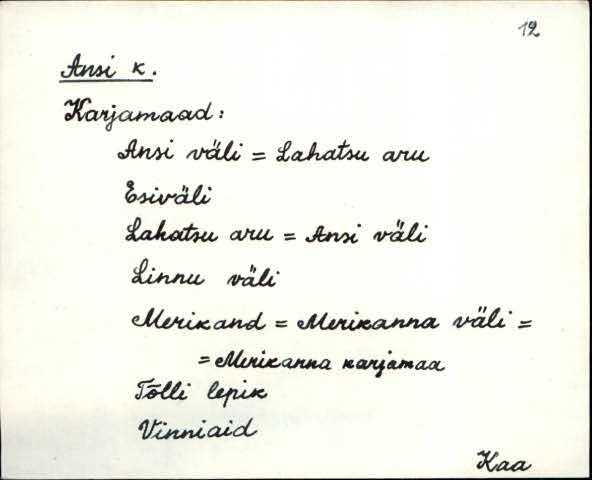 12
Ansi k.
Karjamaad:
Ansi väli = Lahatsu aru
Esiväli
Lahatsu aru = Ansi väli
Linnu väli
Merikand = Merikanna väli =
= Merikanna karjamaa
Tõlli lepik
Vinniaid
Kaa